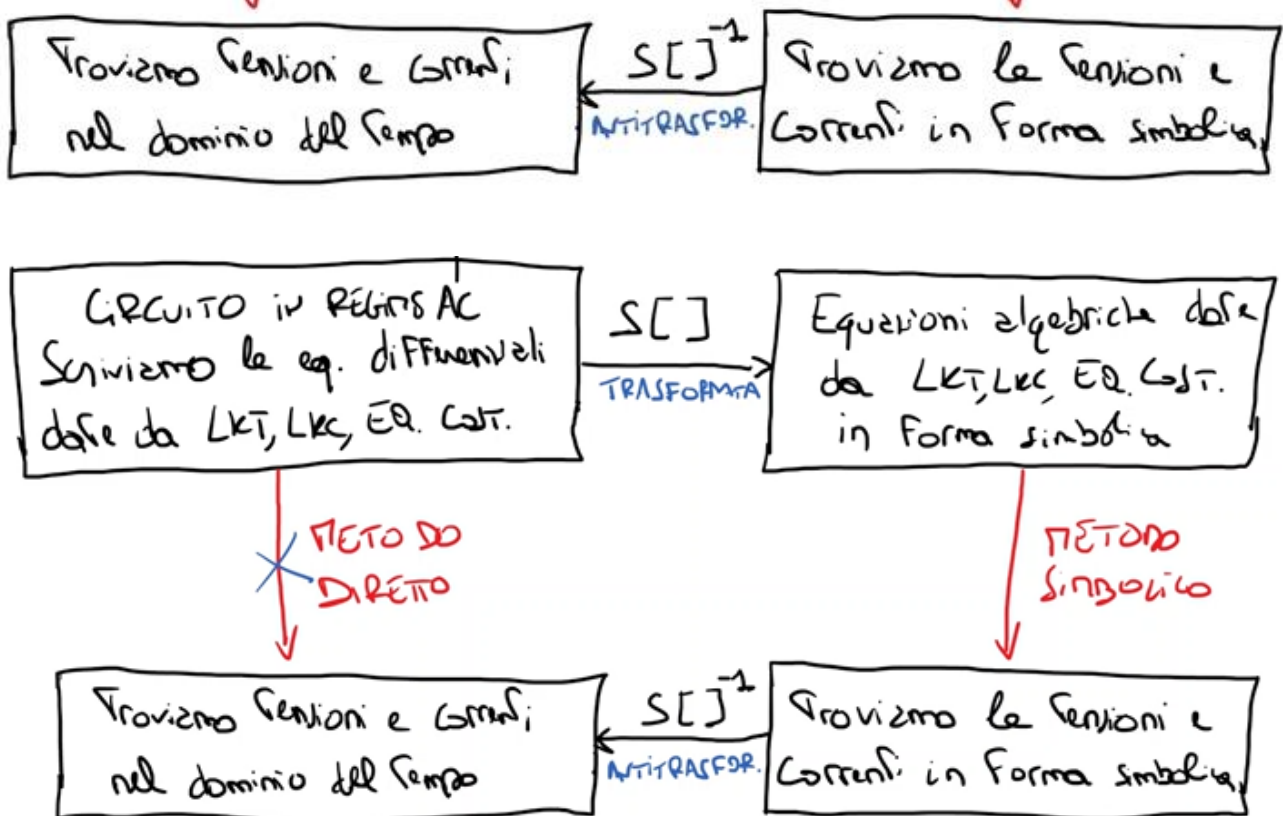 Troviamo Tensioni e Correnti
nel dominio del Tempo
S[]⁻¹
ANTITRASFOR.
Troviamo le Tensioni e
Correnti in Forma simbolica
CIRCUITO in REGIME AC
Scriviamo le eq. differenziali
date da LKT, LKC, EQ. COST.
S[]
TRASFORMATA
Equazioni algebriche date
da LKT, LKC, EQ. COST.
in Forma simbolica
METODO
DIRETTO
METODO
SIMBOLICO
Troviamo Tensioni e Correnti
nel dominio del Tempo
S[]⁻¹
ANTITRASFOR.
Troviamo le Tensioni e
Correnti in Forma simbolica